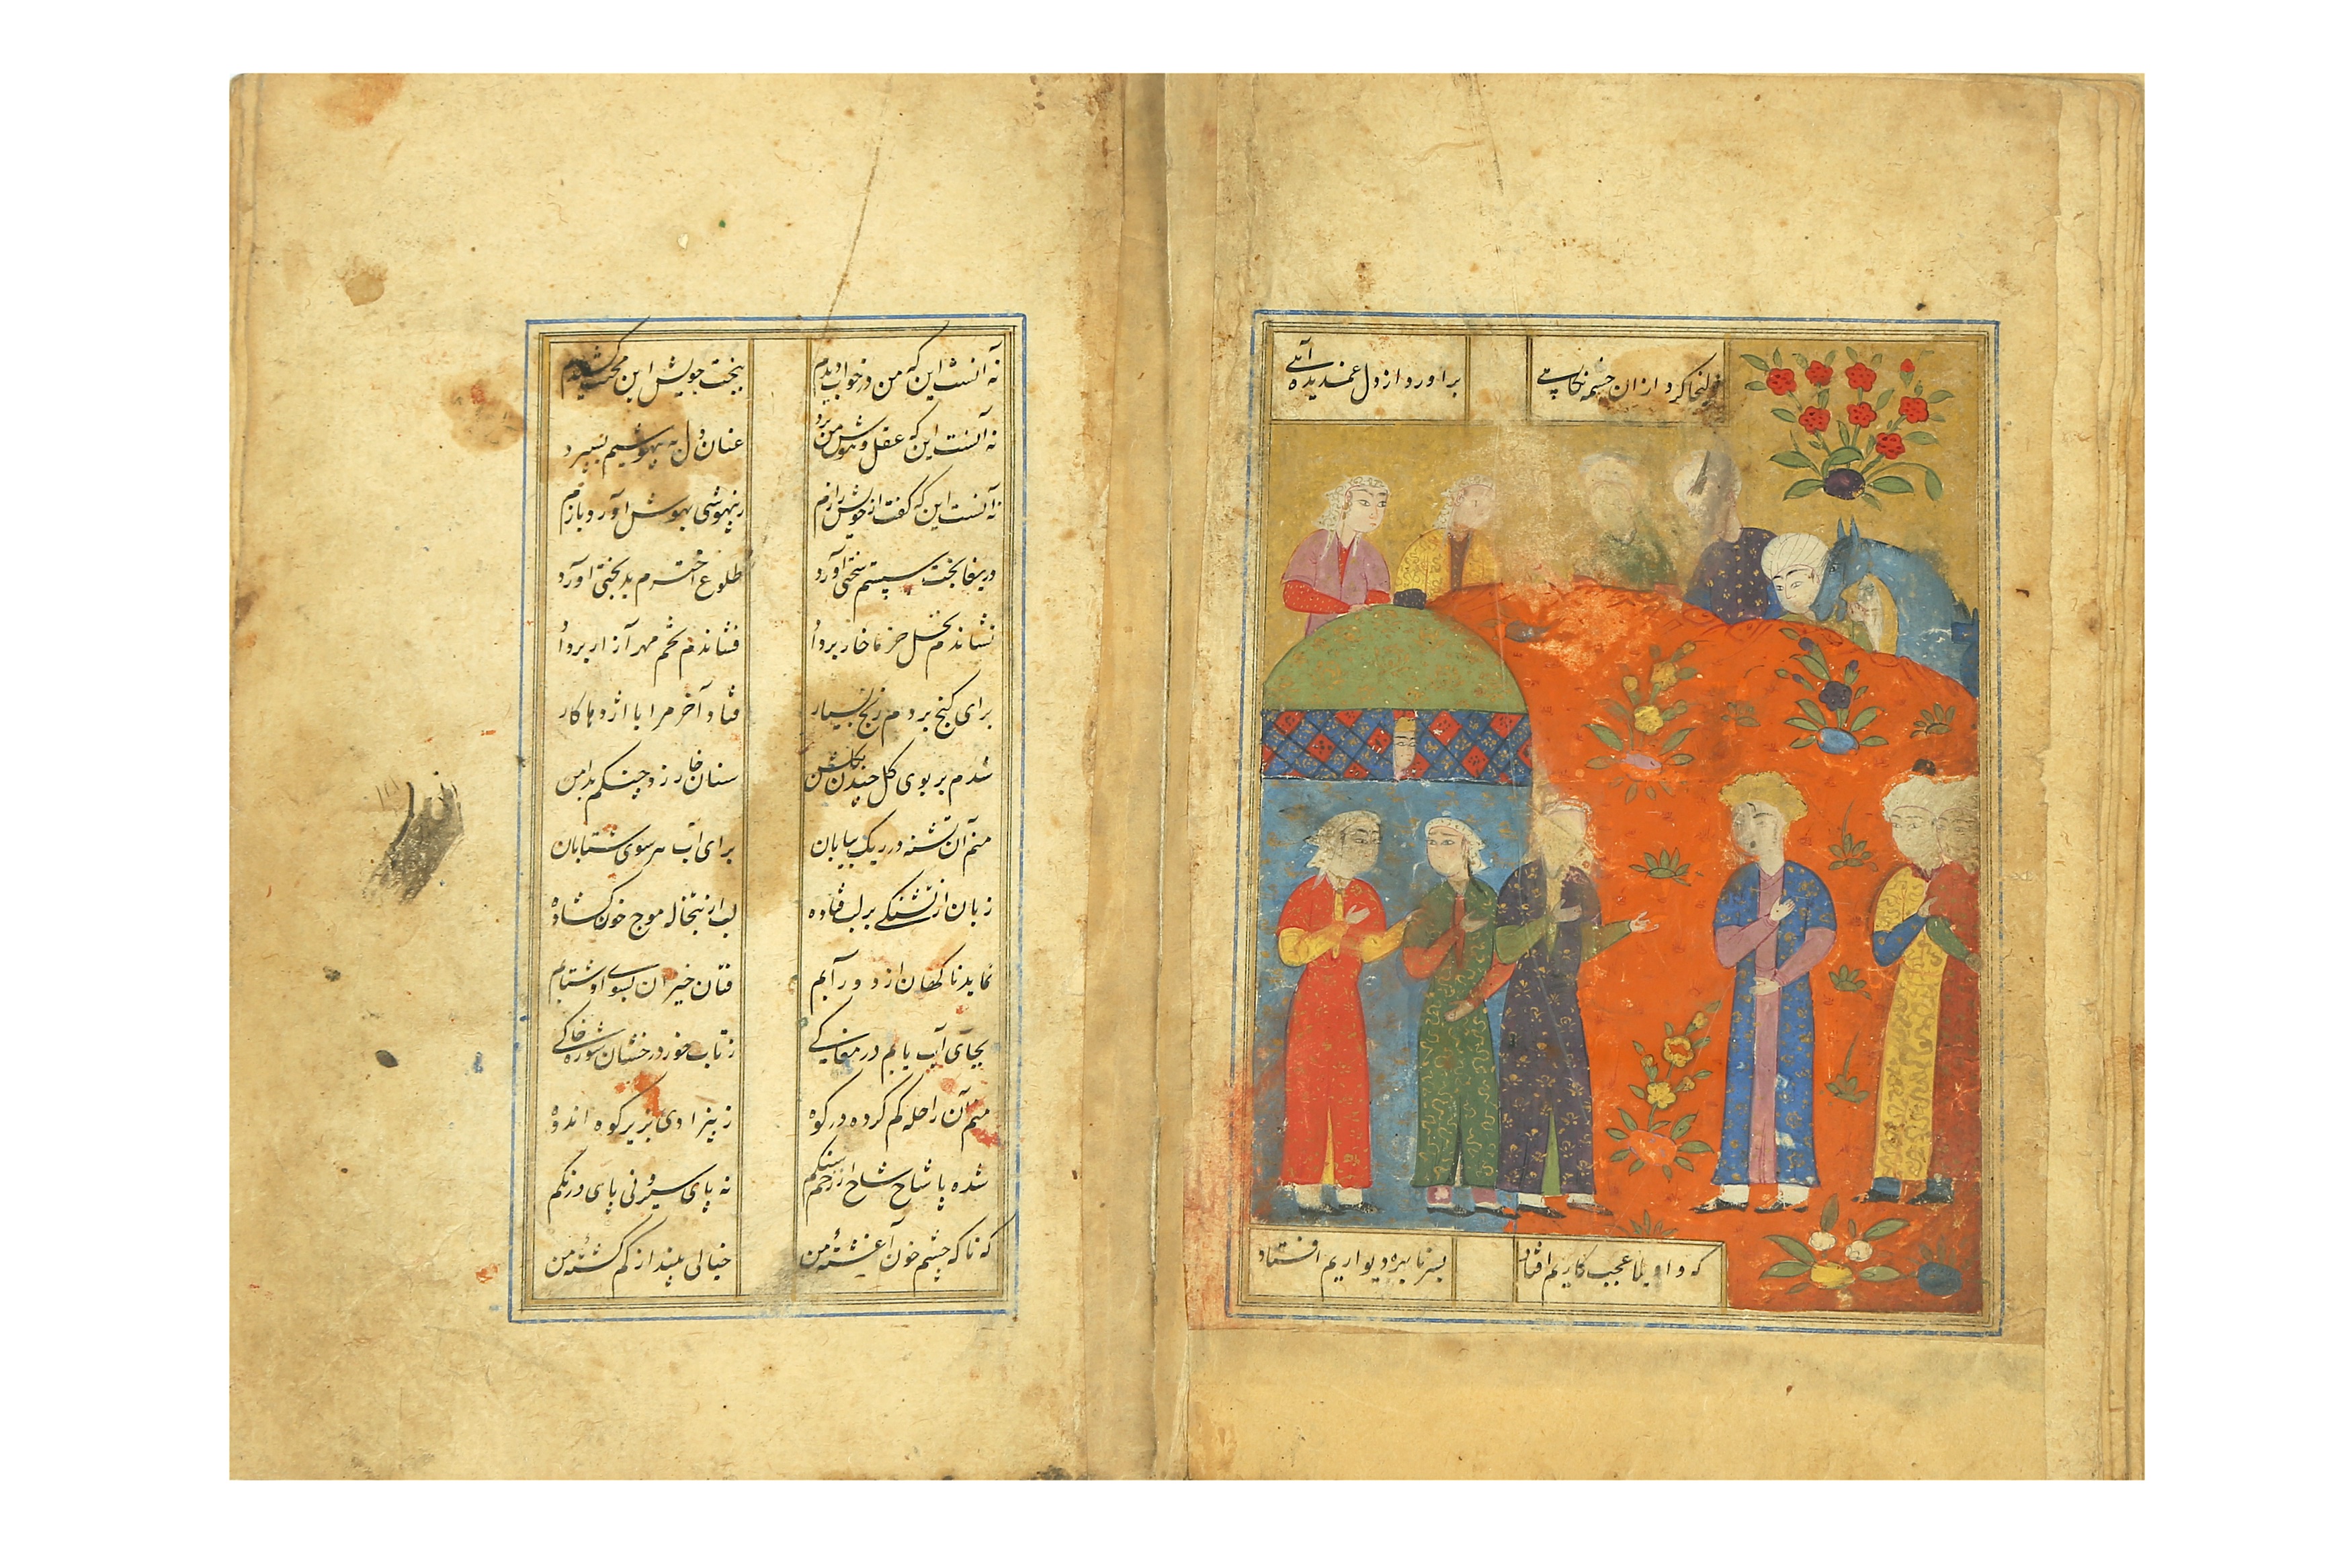 زلیخا کرد ازان خیمه نگاهی
برآورد از دل غمدیده آهی
که واویلا عجب کاریم افتاد
بسر نابهره دیواریم افتاد
نه آنست این که من در خواب دیدم
بجست و جویش این محنت کشیدم
نه آنست این که عقل و هوش من برد
عنان دل به بیهوشیم بسپرد
نه آنست این که گفت از خویش رازم
ز بیهوشی بهوش آورد بازم
دریغا بخت سستم سختی آورد
طلوع اخترم بدبختی آورد
نشاندم نخل خرما خار بر داد
فشاندم تخم مهر آزار بر داد
برای گنج بردم رنج بسیار
فتاد آخر مرا با اژدها کار
شدم بر بوی گل چیدن بگلشن
سنان خار زد چنگم بدامن
منم آن تشنه در ریک بیابان
برای آب هر سوی شتابان
زبان از تشنگی بر لب فتاده
لب از تبخاله موج خون گشاده
نماید ناگهان از دور آبم
فتان خیزان بسوی او شتابم
بجای آب یابم در مغاکی
ز تاب خور درخشان شوره خاکی
منم آن راحله گم کرده در کوه
ز بیزادی بزیر کوه اندوه
شده پا شاخ شاخ از زخم سنگم
نه پای سیر و نی پای درنگم
که ناگه چشم خون آغشتهٔ من
خیالی بیند از گم گشتهٔ من